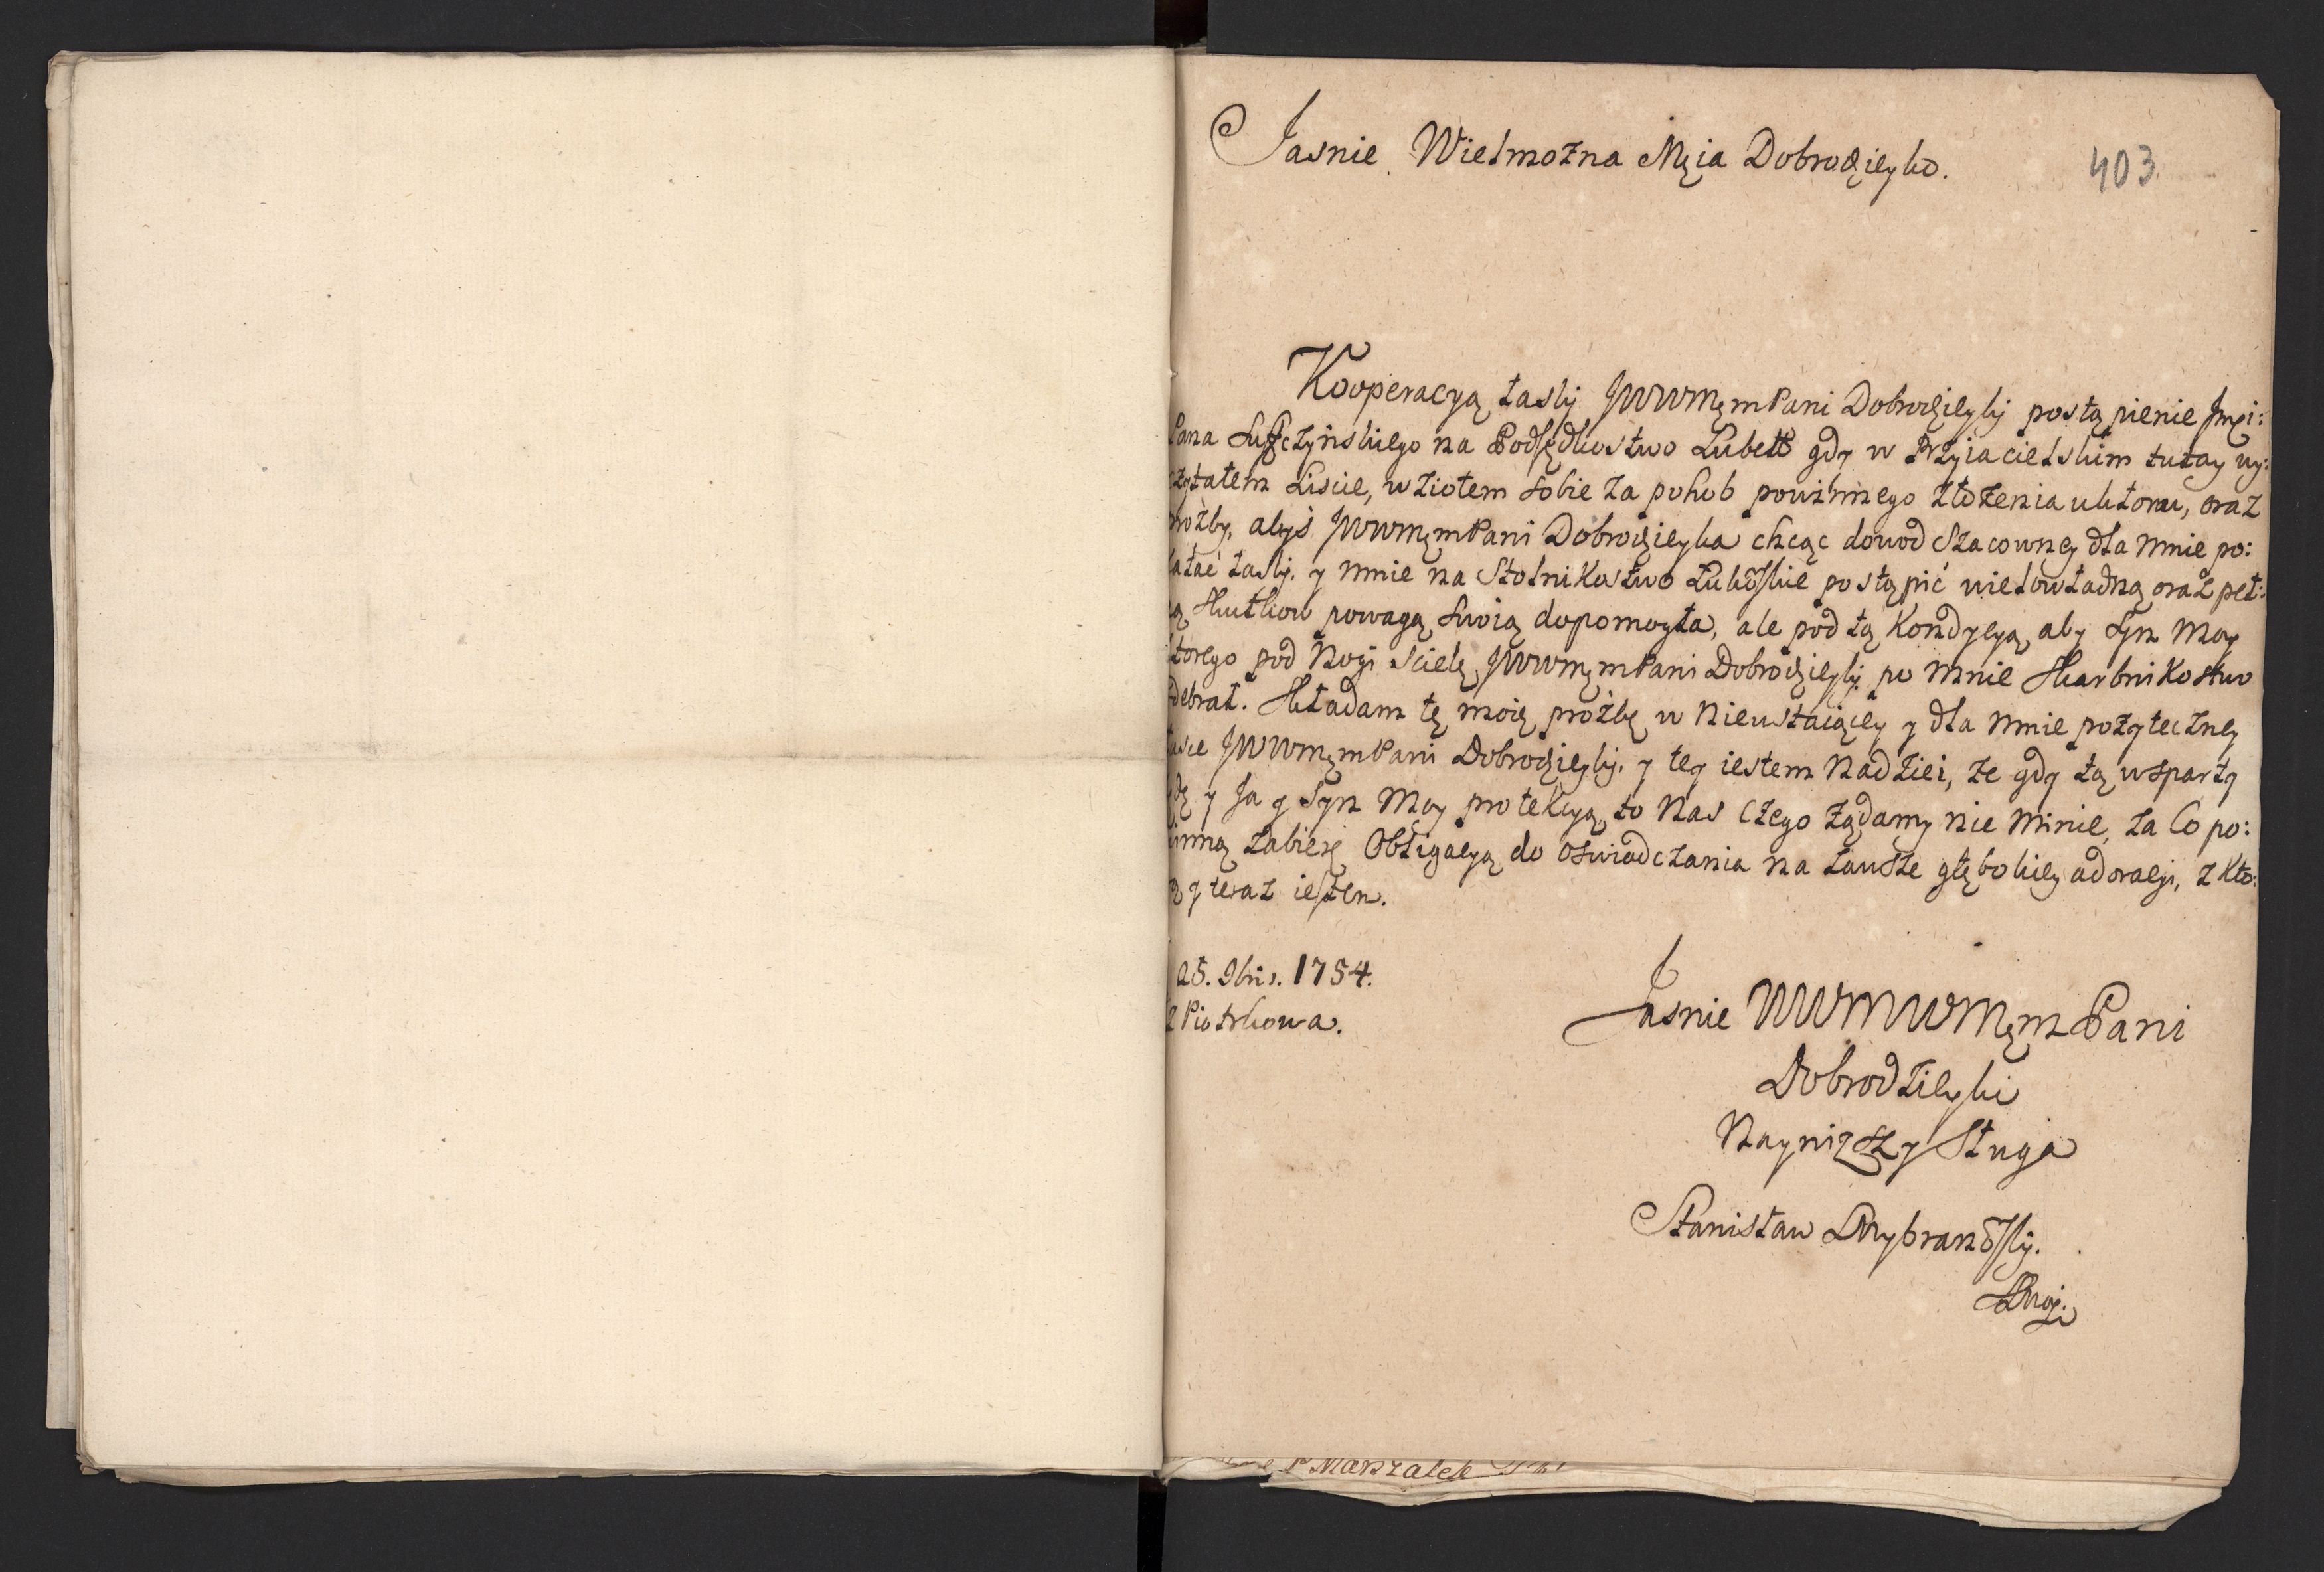 Jasnie Wielmozna Męia Dobrodzieyko.
403
Kooperacyą łaski JWWMęmPani Dobrodzieyki postąpienie Jmci:
Pana Luszczyńskiego na Podsędkostwo Lubel: gdy w Przyiacielskim tutay wy:
czytałem Liscie, wziołem sobie za pohob powinnego złożenia ukłonu, oraz
prozby, abyś JWWMęmPani Dobrodzieyka chcąc dowod szacowney dla mnie po:
kazać łaski, y mnie na Stolnikostwo Lubelskie postąpić wielowładną oraz peł:
ną skutkow powagą swoią dopomogła, ale pod tą Kondycyą, aby Syn moy
ktorego pod Nogi scielę JWWMęmPani Dobrodzieyki po mnie Skarbnikostwo
odebrał. Składam tę moię prozbę w nieustaiącey y dla mnie pozyteczney
łasce JWWMęmPani Dobrodzieyki, y tey iestem nadziei, ze gdy tą wsparty
będę y Ja y Syn moy protekcyą, to nas czego ządamy nie minie, za Co po:
winną zabierę Obligacyą do oswiadczania na zawsze głębokiey adoracyi, z kto:
rą y teraz iestem.
25. 9bris. 1754.
z Piotrkowa.
Jasnie WWMWMęmPani
Dobrodzieyki
Naynizszy Sługa
Stanisław
P Marszałek